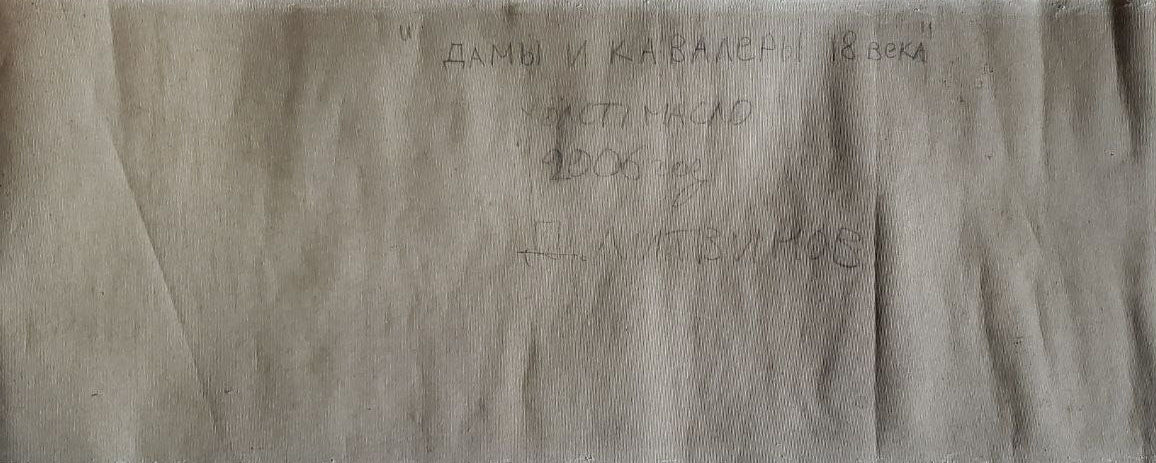 "ДАМЫ И КАВАЛЕРЫ 18 века"
ХОЛСТ, МАСЛО
2006 год
Д. ЛИТВИНОВ